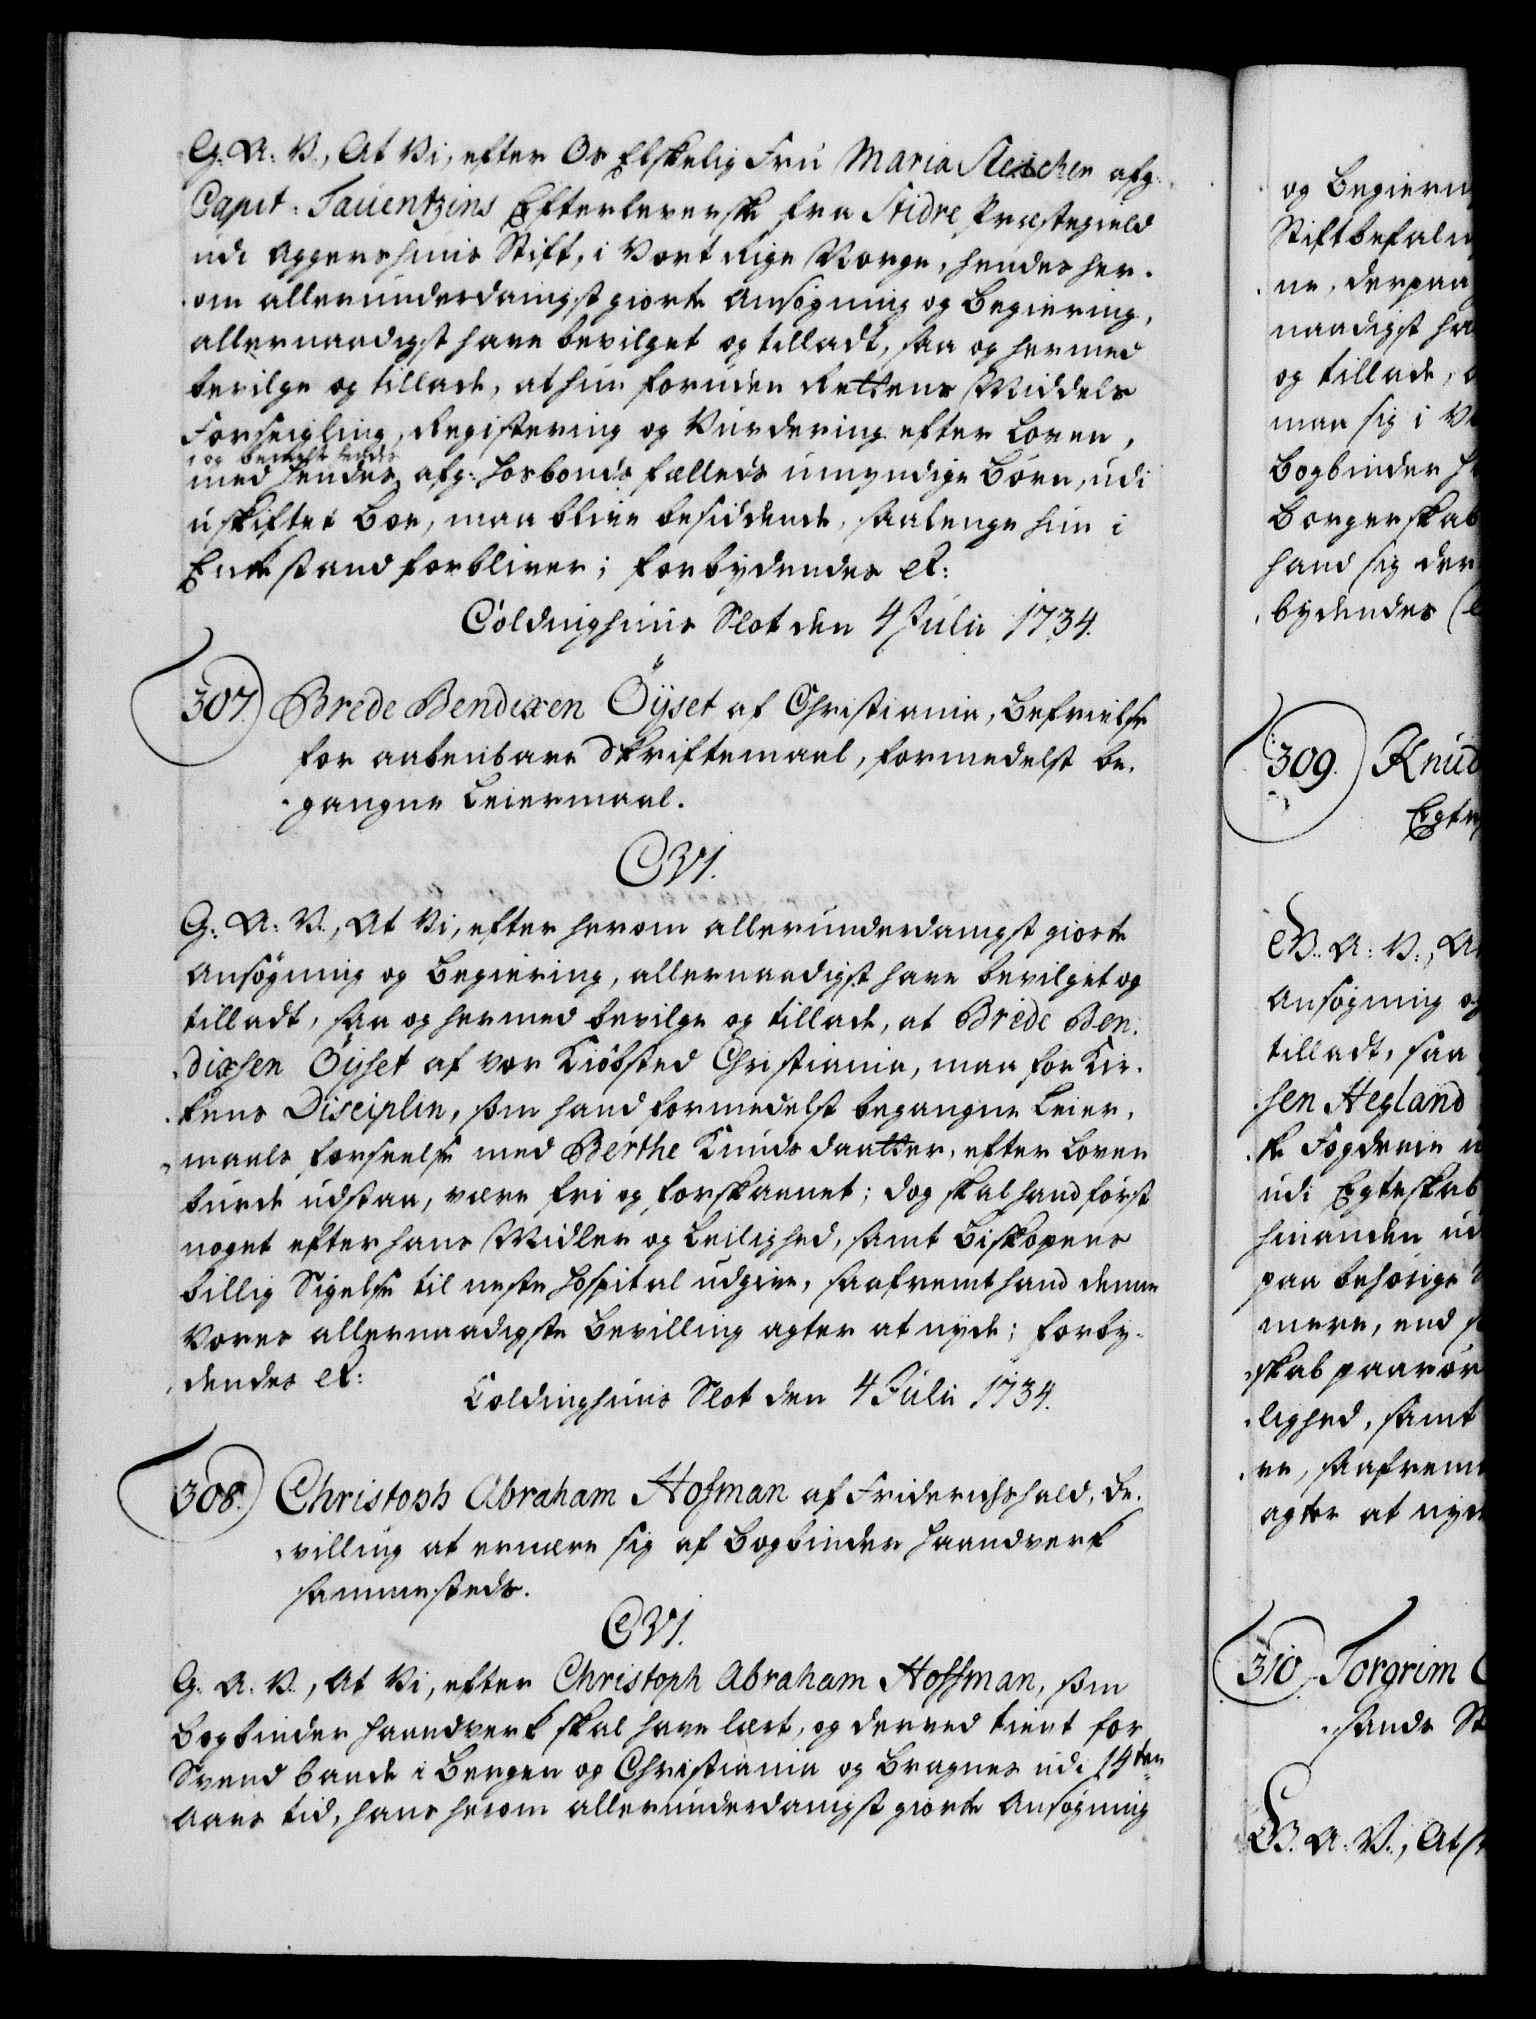 G: A: V., At Vi, efter Os Elskelig Fru Maria Steichen afg:
Capit: Tauentzins Efterleverske fra Slidre Præstegield
udi Aggershuus Stift, i Vort Rige Norge, hendes her-
om allerunderdanigst giorte Ansøgning og Begiering,
allernaadigst have bevilget og tilladt, saa og hermed
bevilge og tillade, at hun foruden Rettens Middels
Forseigling, Registering og Vurdering efter Loven,
med hendes og bemelte hendes afg: Hosbonds fælleds umyndige Børn, udi
uskiftet Boe, maa blive besiddende, saalenge hun i
Enkestand forbliver; forbydendes etc:
Coldinghuus Slot den 4 Julii 1734.
307. Brede Bendixen Öÿset af Christiania, Befrielse
for aabenbare Skriftemaal, formedelst be-
gangne Leiermaal.
C VI.
G: A: V., At Vi, efter herom allerunderdanigst giorte
Ansøgning og Begiering, allernaadigst have bevilget og
tilladt, saa og hermed bevilge og tillade, at Brede Ben-
dixsen Öÿset af vor Kiöbsted Christiania, maa for Kir-
kens Disciplin, som hand formedelst begangne Leier-
maals forseelse med Berthe Knudsdaatter, efter Loven
burde udstaa, være fri og forskaanet; dog skal hand først
noget efter hans Midler og Leilighed, samt Biskopens
billig Sigelse til neste Hospital udgive, saafremt hand denne
Vores allernaadigste Bevilling agter at nyde; forby-
dendes etc:
Coldinghuus Slot den 4 Julii 1734.
308. Christoph Abraham Hofman af Friderichshald, Be-
villing at ernære sig af Bogbinder Haandverk
sammesteds.
C VI.
G. A. V., At Vi, efter Christoph Abraham Hoffman, som
Bogbinder Haandverk skal have lært, og derved tient for
Svend baade i Bergen og Christiania og Bragnes udi 14ten
Aars tid, hans herom allerunderdanigst giorte Ansøgning
og Begiern
Stiftbefalin
ne, derpaa
naadigst ha
og tillade, a
maa sig i V
Bogbinder H
Borgerskab
hand sig der
bydendes
309. Knud
Egte
G. A. V., A
Ansøgning og
tilladt, saa
sen Hegland
ke Fogderie u
udi Egteskab
hinanden ud
paa behørige
mere, end s
skab paarør
lighed, samt
ve, saafremt
agter at nyde
310. Torgrim
sands St
G. A. V., At